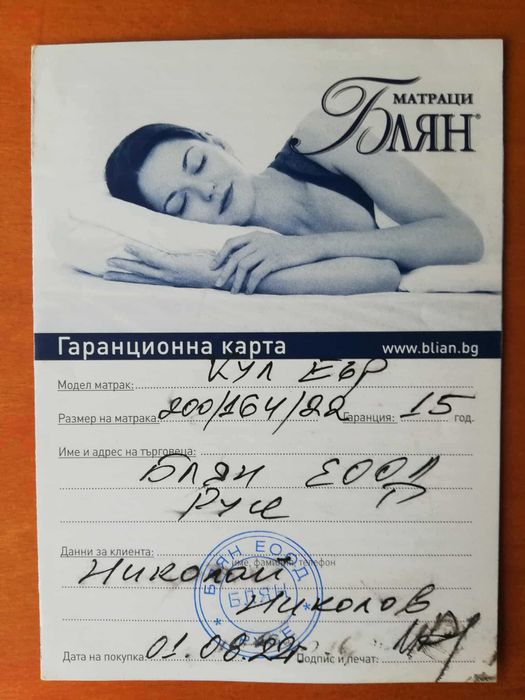 МАТРАЦИ
БЛЯН®
Гаранционна карта www.blian.bg
Модел матрак: Кул Еър
Размер на матрака: 200/164/22 Гаранция: 15 год.
Име и адрес на търговеца:
Блян ЕООД
Русе
Данни за клиента:
име, фамилия, телефон
Николай
Николов
БЛЯН ЕООД
БЛЯН
Дата на покупка: 01.08.22г Подпис и печат: